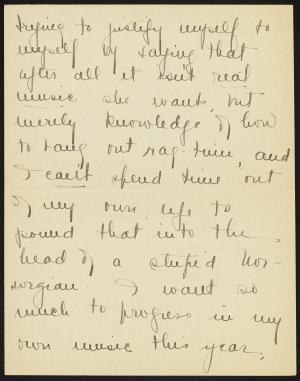 trying to justify myself to
myself by saying that
after all it isn't real
music she wants, but
merely knowledge of how
to bang out rag-time, and
I can't spend time out
of my own life to
pound that into the
head of a stupid Nor-
wegian. I want so
much to progress in my
own music this year,